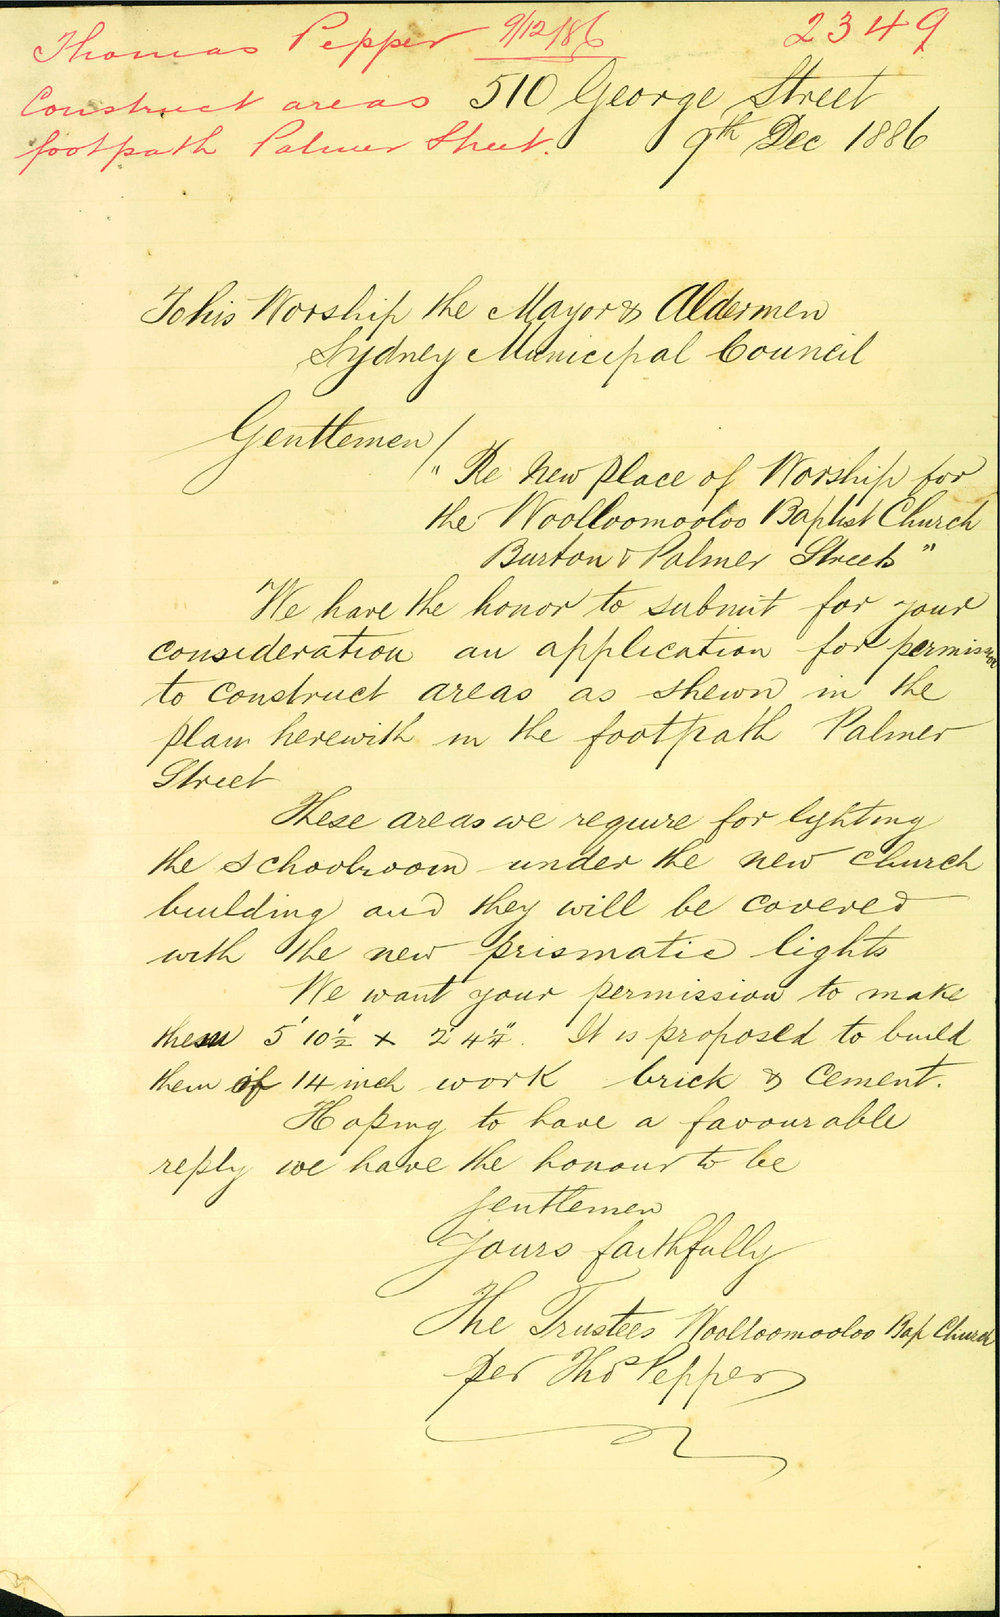 Thomas Pepper 9/12/86 2349
Construct areas
footpath Palmer Street.
510 George Street
9th Dec 1886
To his Worship the Mayor & Aldermen
Sydney Municipal Council
Gentlemen/
"Re New place of Worship for
the Woolloomooloo Baptist Church
Burton & Palmer Streets"
We have the honor to submit for your
consideration an application for permission
to construct areas as shewn in the
plan herewith in the footpath Palmer
Street
These areas we require for lighting
the schoolroom under the new church
building and they will be covered
with the new prismatic lights
We want your permission to make
them 5' 10½" x 2' 4¼". It is proposed to build
them of 14 inch work brick & cement.
Hoping to have a favourable
reply we have the honour to be
gentlemen
Yours faithfully
The Trustees Woolloomooloo Bap Church
per Thos Pepper